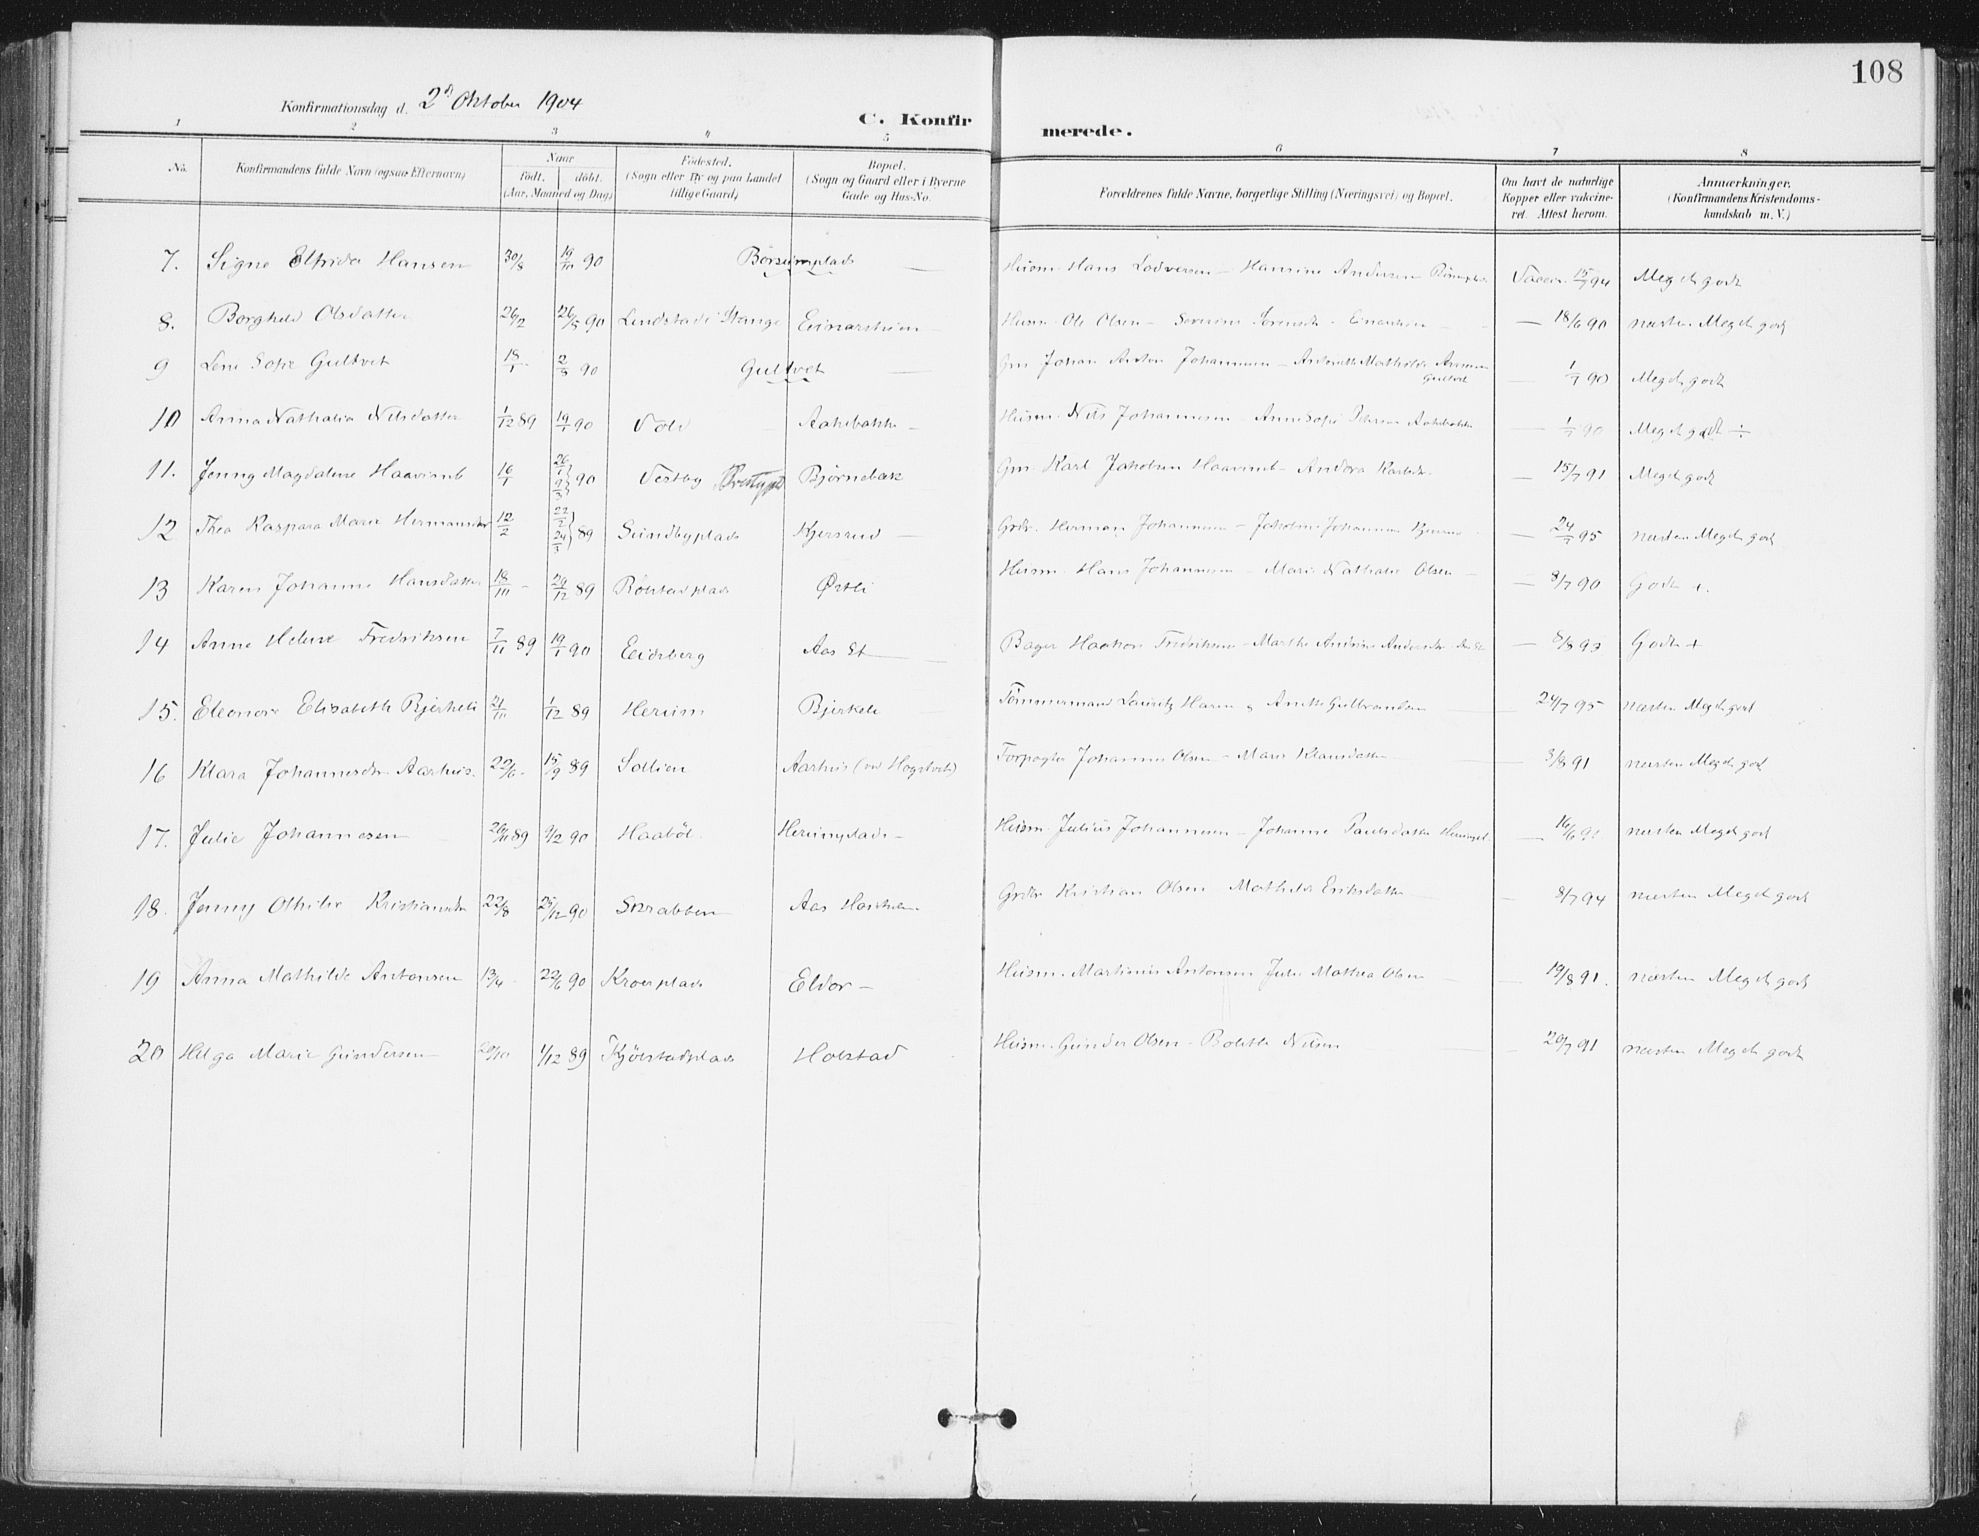 108
Konfirmationsdag d. 2den Oktober 1904
C. Konfirmerede.
1 2 3 4 5 6 7 8
No.
Konfirmandens fulde Navn (ogsaa Efternavn)
Naar
födt. döbt.
(Aar, Maaned og Dag)
Födested.
(Sogn eller By og paa Landet
tillige Gaard)
Bopæl.
(Sogn og Gaard eller i Byerne
Gade og Hus-No.
Forældrenes fulde Navne, borgerlige Stilling (Næringsvei) og Bopæl.
Om havt de naturlige
Kopper eller vakcineret. Attest herom.
Anmærkninger.
(Konfirmandens Kristendomskundskab m. V.)
7. Signe Elfrida Hansen 30/8 19/10 90 Børsumplads — Husm. Hans Lodversen — Hansine Andersen Vaccin. 15/7 94 Meget godt
8. Borghild Olsdatter 26/2 26/5 90 Lindstad i Stange Einarsheim — Husm. Ole Olsen — Severine — 18/6 90 næsten Meget godt
9 Lene Sofie Gultvet 18/1 2/3 90 Gultvet — Gm Johan Anton Johannesen — Gultvet — 1/7 90 Meget godt
10 Anna Nathalia Nilsdatter 1/12 89 19/1 90 Vold — Aakebakke — Husm. Nils Johannesen — Anne Sofie Aakebakke — 1/7 90 Meget godt ÷
11. Jenny Magdalene Haavimb 16/1 26/1 9/3 90 Vestby Bjørnebæk Gm. Karl Jakobsen Haavimb — Andora Karlsdtr. — 15/7 91 Meget godt
12 Thea Kaspara Marie Hermansdtr 12/2 22/2 24/3 89 Sundbyplads Kjersrud — Grdr. Herman Johannesen — Johannesen — 24/7 95 næsten Meget godt
13 Karen Johanne Hansdatter 18/10 – 29/12 89 Rølstadplads Østli Husm. Hans Johannesen — Marie Nathalie Olsen — — 8/7 90 Godt +.
14 Anne Helene Fredriksen 7/11 89 19/1 90 Eidsberg Aas St — Bager Haakon Fredriksen — Marthe Andrine Andersdtr. — 8/8 93 Godt +
15. Eleonore Elisabeth Bjerkeli 21/10 1/12 89 Herum Bjerkeli — Tömmermand Lauritz Hansen & Anette Gulbrandsen — 24/7 95 næsten Meget godt
16 Klara Johannesdtr. Aarhus. 22/6 – 15/9 89 Sollien Aarhus (ved Hogstvedt) Forpagter Johannes Olsen — Marie Klausdatter — 3/8 91 næsten Meget godt
17. Julie Johannesen — 26/11 89 9/2 90 Haaböl Herumplads — Husm. Julius Johannesen — Johanne Paulsdatter Herumpl. — 16/6 91 næsten Meget godt
18. Jenny Othilie Kristiansdtr 22/8 25/12 90 Skrabben Aas Grdbr Kristian Olsen Mathilde Eriksdatter — 8/7 94 næsten Meget godt
19 Anna Mathilde Antonsen 13/4 – 22/6 90 Kroerplads Eldor — Husm. Martinius Antonsen Julie Mathea Olsen — 19/8 91. næsten Meget godt
20 Helga Marie Gundersen 20/10 1/12 89 Kjölstadplads Holstad Husm. Gunder Olsen — Bolette Nilsen — 20/7 91 næsten Meget godt